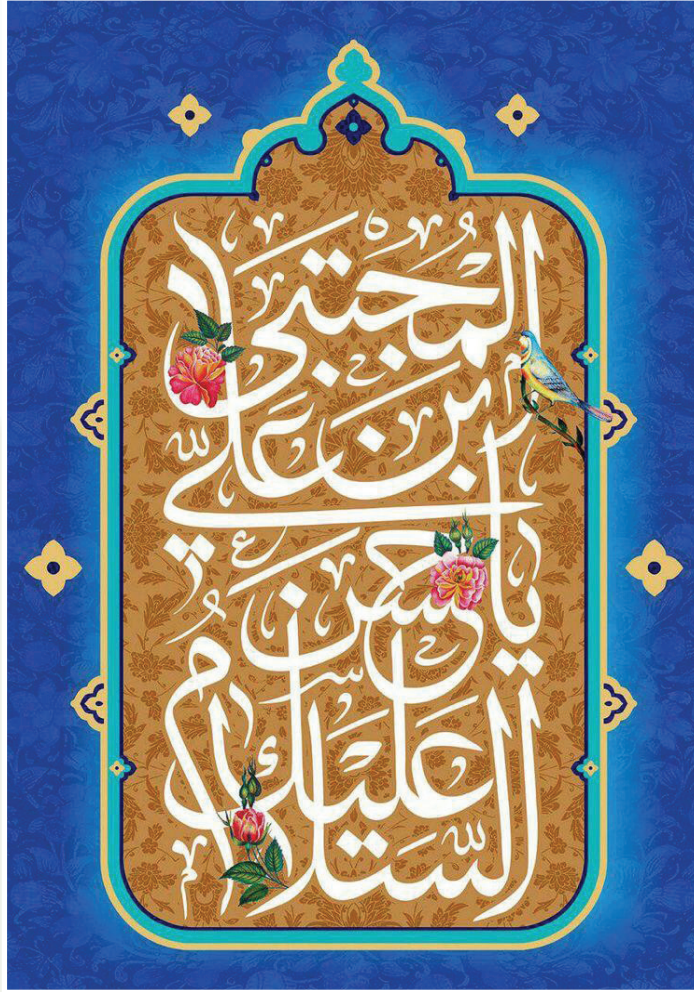 السَّلامُ عَلیْكَ
یا حَسَنَ
بنَ عَليٍّ
المُجتَبی